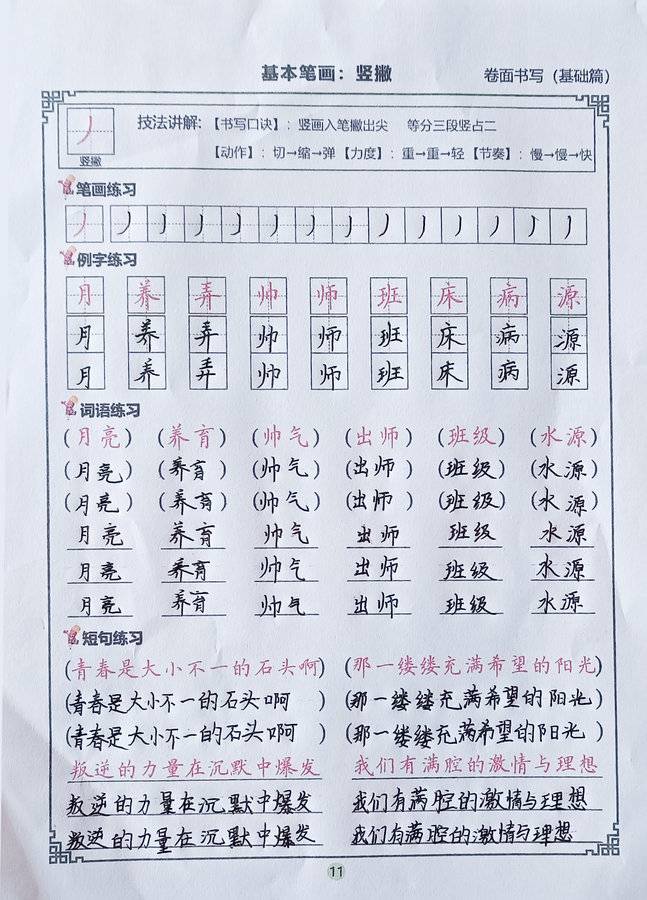 基本笔画：竖撇
卷面书写（基础篇）
竖撇
技法讲解：【书写口诀】：竖画入笔撇出尖 等分三段竖占二
【动作】：切→缩→弹【力度】：重→重→轻【节奏】：慢→慢→快
笔画练习
例字练习
月 养 弄 帅 师 班 床 病 源
月 养 弄 帅 师 班 床 病 源
月 养 弄 帅 师 班 床 病 源
词语练习
（月亮） （养育） （帅气） （出师） （班级） （水源）
（月亮） （养育） （帅气） （出师） （班级） （水源）
（月亮） （养育） （帅气） （出师） （班级） （水源）
月亮 养育 帅气 出师 班级 水源
月亮 养育 帅气 出师 班级 水源
月亮 养育 帅气 出师 班级 水源
短句练习
（青春是大小不一的石头啊） （那一缕缕充满希望的阳光）
（青春是大小不一的石头啊） （那一缕缕充满希望的阳光）
（青春是大小不一的石头啊） （那一缕缕充满希望的阳光）
叛逆的力量在沉默中爆发 我们有满腔的激情与理想
叛逆的力量在沉默中爆发 我们有满腔的激情与理想
叛逆的力量在沉默中爆发 我们有满腔的激情与理想
11